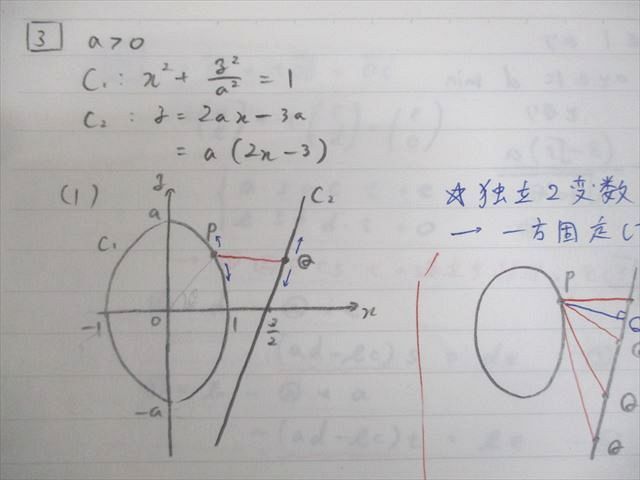 3 a>0
C₁: x² + y²/a² = 1
C₂: y = 2ax - 3a
= a(2x-3)
(1)
y
a
C₁
P
C₂
Q
-1
0
θ
1
3/2
x
-a
☆独立2変数
→ 一方固定し
P
Q
Q
Q
Q